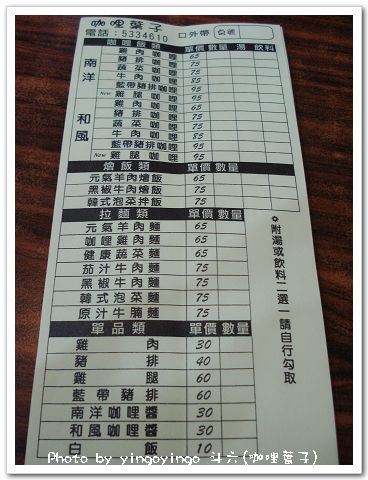 咖哩葉子
電話：5334610 □外帶 桌號
咖哩飯類 單價 數量 湯 飲料
南洋
雞肉咖哩 65
豬排咖哩 75
蔬菜咖哩 75
牛肉咖哩 85
藍帶豬排咖哩 95
New 雞腿咖哩 95
和風
雞肉咖哩 65
豬排咖哩 75
蔬菜咖哩 75
牛肉咖哩 85
藍帶豬排咖哩 95
New 雞腿咖哩 95
燴飯類 單價 數量
元氣羊肉燴飯 65
黑椒牛肉燴飯 75
韓式泡菜拌飯 75
拉麵類 單價 數量
元氣羊肉麵 65
咖哩雞肉麵 65
健康蔬菜麵 65
茄汁牛肉麵 75
黑椒牛肉麵 75
韓式泡菜麵 75
原汁牛腩麵 75
單品類 單價 數量
雞肉 30
豬排 40
雞腿 60
藍帶豬排 60
南洋咖哩醬 30
和風咖哩醬 30
白飯 10
✿附湯或飲料二選一請自行勾取
Photo by yingoyingo 斗六(咖哩葉子)